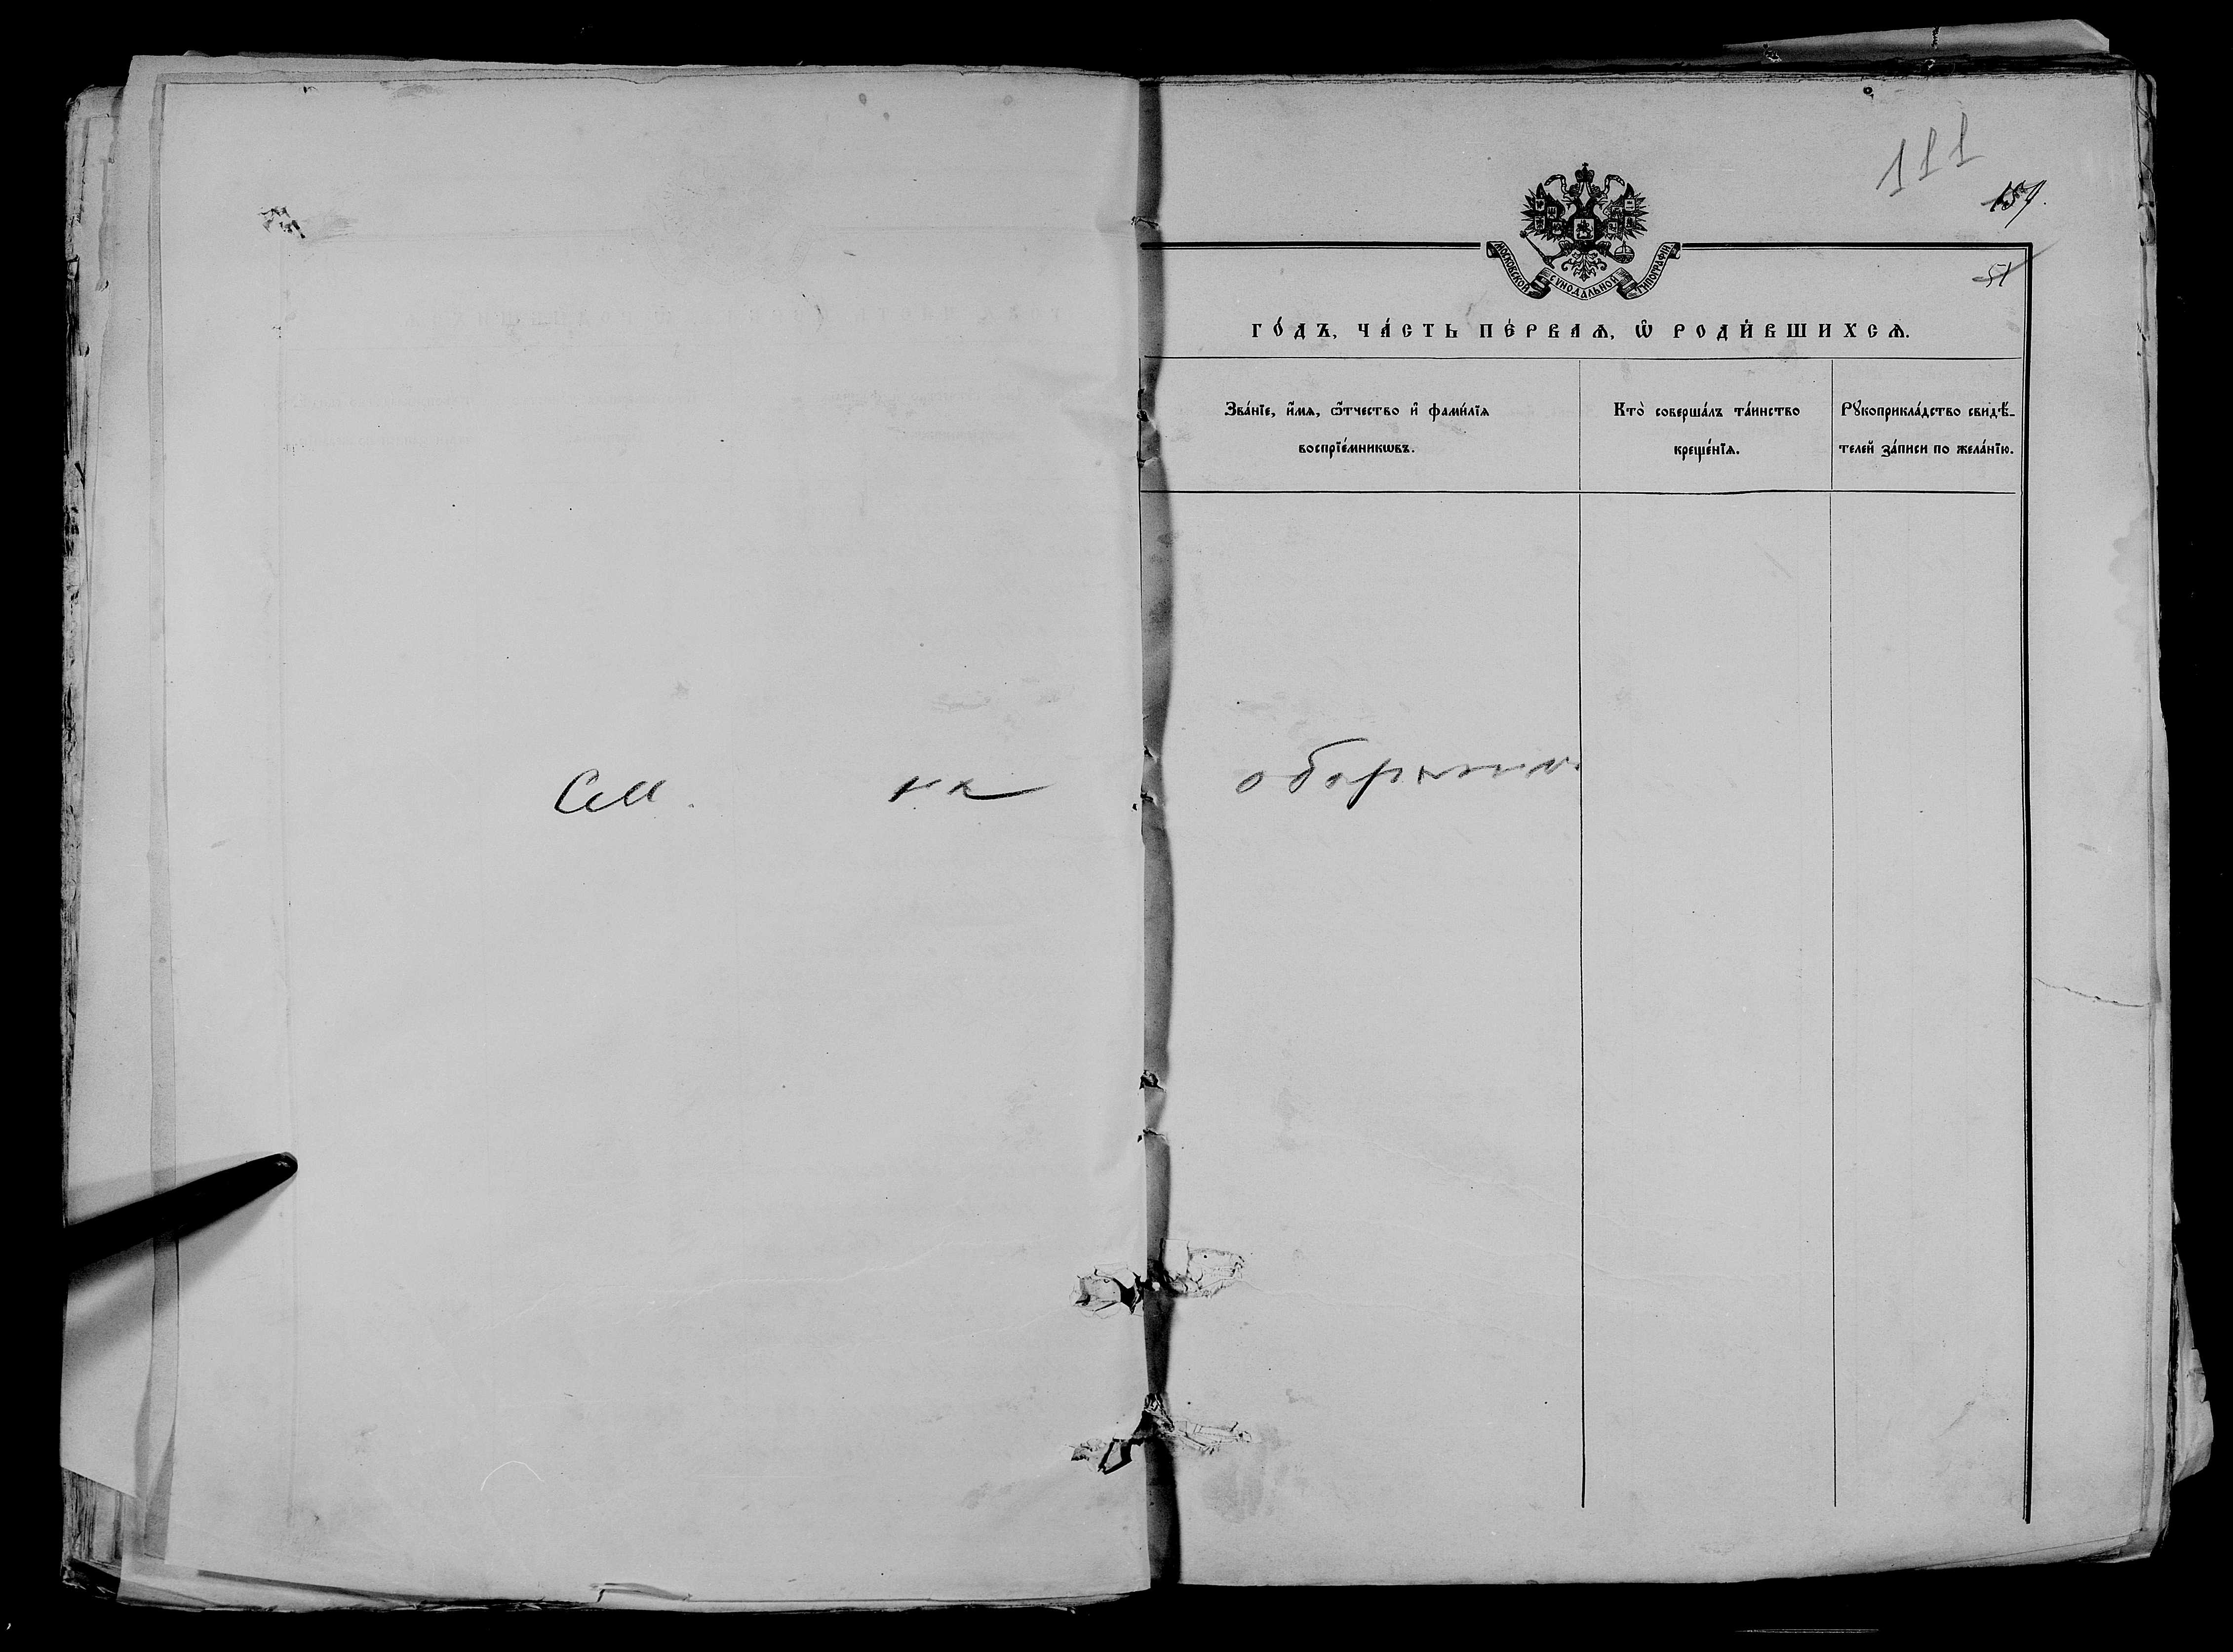 111
157.
51
МОСКОВСКОЙ СѴНОДАЛЬНОЙ ТИПОГРАФІИ
ГО́ДЪ, ЧА́СТЬ ПЕ́РВАѦ, Ѽ РОДИ́ВШИХСѦ.
Зва́нїе, и҆́мѧ, ѻ҆́тчество и҆ фами́лїѧ
воспрїе́мникѡвъ.
Кто̀ соверша́лъ та́инство
креще́нїѧ.
Рꙋкоприкла́дство свидѣ́-
телей за́писи по жела́нїю.
См. на обороте